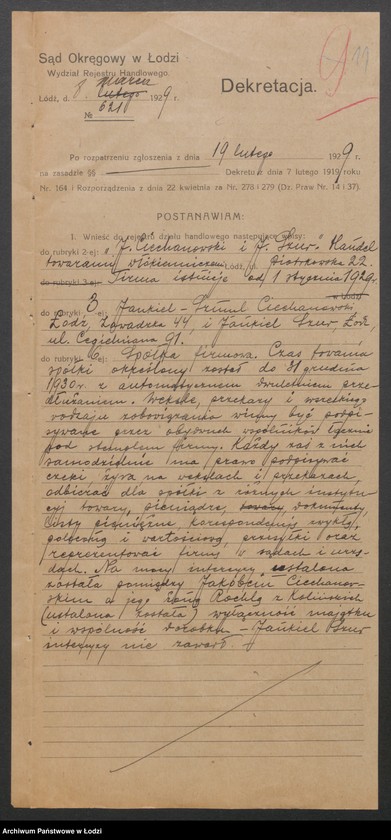 Sąd Okręgowy w Łodzi
Wydział Rejestru Handlowego.
Łódź, d. 8 marca lutego 1929 r.
№ 6218
Dekretacja.
Po rozpatrzeniu zgłoszenia z dnia 19 lutego 1929 r.
na zasadzie §§ Dekretu z dnia 7 lutego 1919 roku
Nr. 164 i Rozporządzenia z dnia 22 kwietnia za Nr. 278 i 279 (Dz. Praw Nr. 14 i 37).
POSTANAWIAM:
1. Wnieść do rejestru działu handlowego następujące wpisy:
do rubryki 2-ej: "J. Ciechanowski i J. Szur" Handel
towarami włókienniczemi Łódź, ul. Piotrkowska 22.
do rubryki 3-ej: Firma istnieje od 1 stycznia 1929 r.
do rubryki 3 ej: Jankiel-Szmul Ciechanowski
Łódź, Zawadzka 44, i Jankiel Szur, Łódź,
ul. Cegielniana 91.
do rubryki 6 ej: Spółka firmowa. Czas trwania
spółki określony został do 31 grudnia
1930 r. z automatycznem dwuletniem prze-
dłużaniem. Weksle, przekazy i wszelkiego
rodzaju zobowiązania winny być podpi-
sywane przez obydwuch wspólników łącznie
pod stemplem firmy. Każdy zaś z nich
samodzielnie ma prawo podpisywać
czeki, żyra na wekslach i przekazach,
odbierać dla spółki z różnych instytu-
cyj towary, pieniądze, towary dokumenty,
listy pieniężne, korespondencję zwykłą,
poleconą i wartościową, przesyłki oraz
reprezentować firmę w sądach i urzę-
dach. Na mocy intercyzy ustalona
została pomiędzy Jakóbem Ciechanow-
skim a jego żoną Rochlą z Kolińskich
(ustalona została) wyłączność majątku
i wspólność dorobku – Jankiel Szur
intercyzy nie zawarł.
Archiwum Państwowe w Łodzi